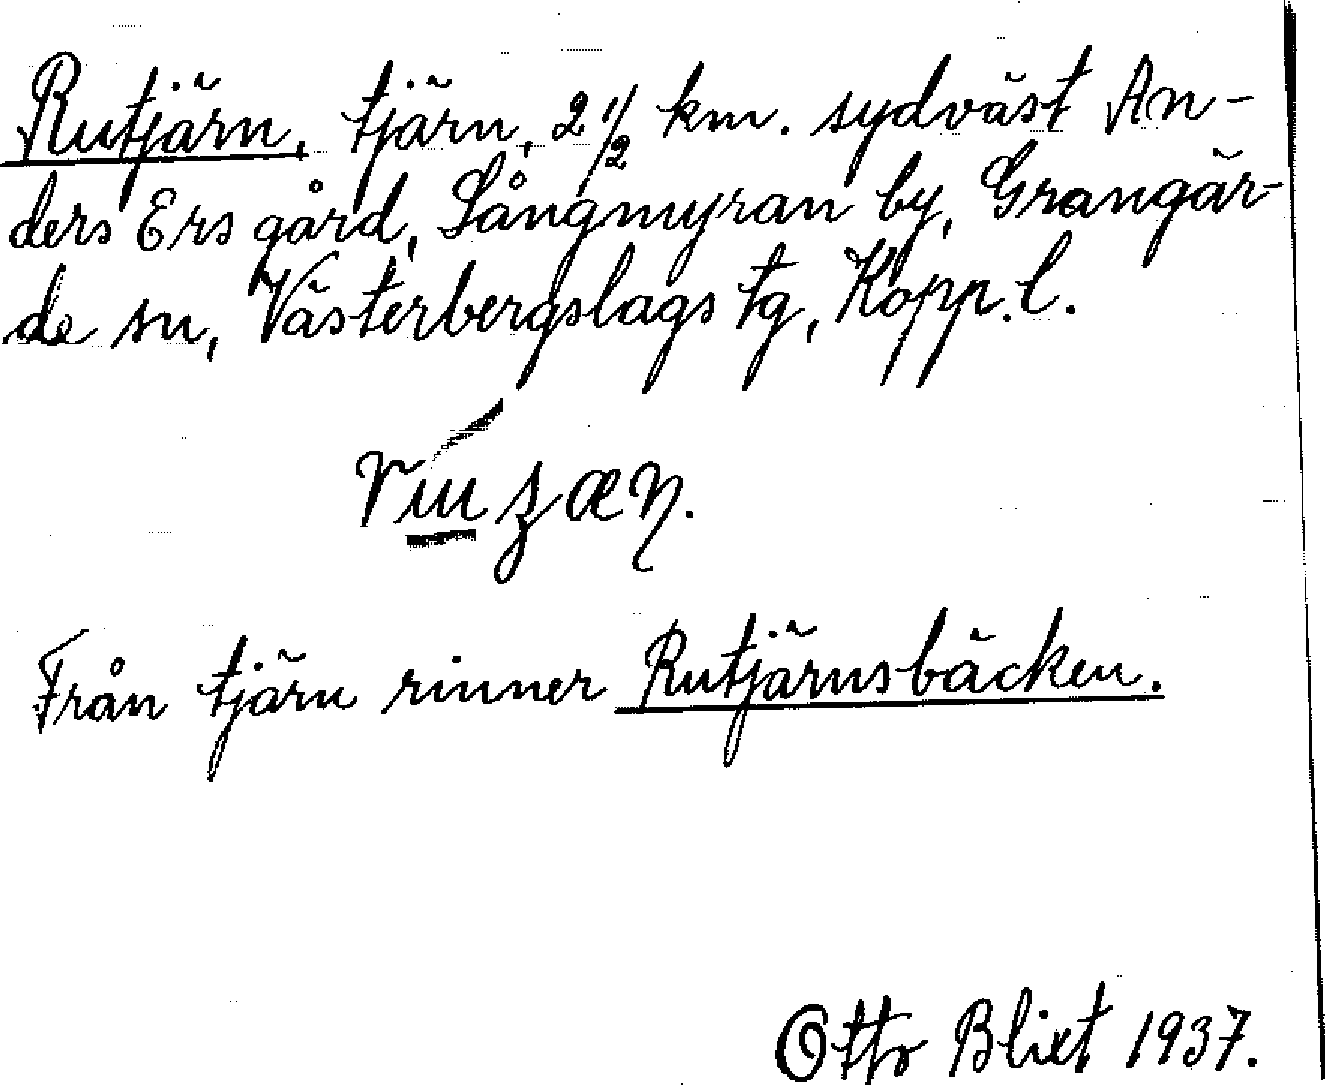 Rutjärn, tjärn, 2 1/2 km. sydväst An-
ders Ers gård, Sångmyran by, Grangär-
de sn, Västerbergslags tg, Kopp. l.
Från tjärn rinner Rutjärnsbäcken.
Otto Blixt 1937.